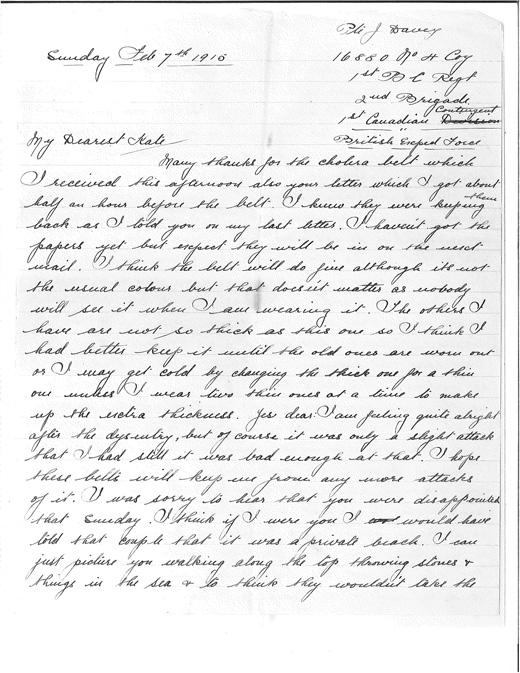 Pte J Davey
Sunday Feb 7th 1915
16880 No 4 Coy
1st B C Regt
2nd Brigade
Contingent
1st Canadian Division
British Exped Force
My Dearest Kate
Many thanks for the cholera belt which
I received this afternoon also your letter which I got about
half an hour before the belt. I knew they were keeping them
back as I told you on my last letter. I haven't got the
papers yet but expect they will be in on the next
mail. I think the belt will do fine although its not
the usual colour but that doesn't matter as nobody
will see it when I am wearing it. The others I
have are not so thick as this one so I think I
had better keep it until the old ones are worn out
or I may get cold by changing the thick one for a thin
one unless I wear two thin ones at a time to make
up the extra thickness. Yes dear. I am feeling quite alright
after the dysentry, but of course it was only a slight attack
that I had still it was bad enough at that. I hope
these belts will keep me from any more attacks
of it. I was sorry to hear that you were disappointed
that Sunday. I think if I were you I would have
told that couple that it was a private beach. I can
just picture you walking along the top throwing stones &
things in the sea & to think they wouldn't take the